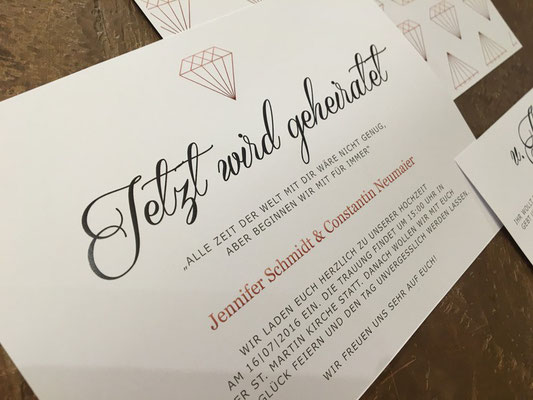 Jetzt wird geheiratet
„ALLE ZEIT DER WELT MIT DIR WÄRE NICHT GENUG,
ABER BEGINNEN WIR MIT FÜR IMMER“
Jennifer Schmidt & Constantin Neumaier
WIR LADEN EUCH HERZLICH ZU UNSERER HOCHZEIT
AM 16/07/2016 EIN. DIE TRAUUNG FINDET UM 15:00 UHR IN
DER ST. MARTIN KIRCHE STATT. DANACH WOLLEN WIR MIT EUCH
GLÜCK FEIERN UND DEN TAG UNVERGESSLICH WERDEN LASSEN.
WIR FREUEN UNS SEHR AUF EUCH!